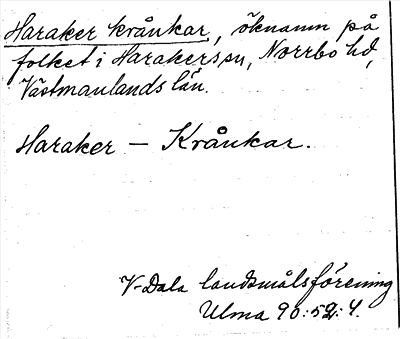 Haraker kråukar, öknamn på
folket i Harakers sn, Norrbo hd,
Västmanlands län.
Haraker — Kråukar.
V-Dala landsmålsförening
Ulma 90:52:4.